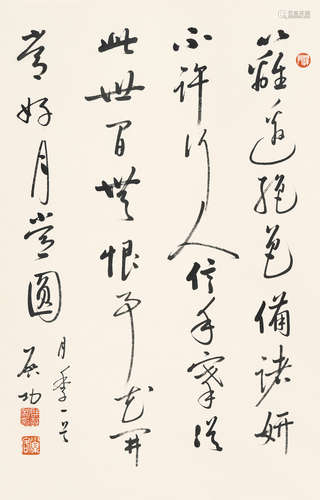 籬邊絕色備諸妍
不許行人信手搴從
此世間無恨事花開
常好月常圓
月季一首
啟功